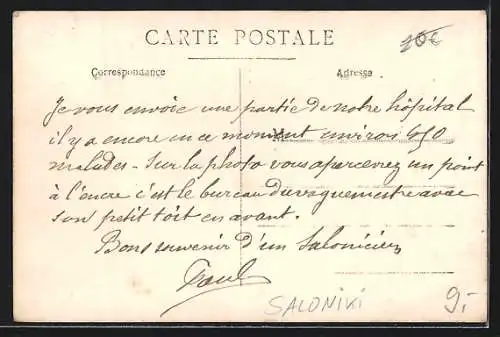 CARTE POSTALE
10€
Correspondance
Adresse
Je vous envoie une partie de notre hôpital
il y a encore en ce moment environ 450
malades - Sur la photo vous apercevrez un point
à l'encre c'est le bureau du vaguemestre avec
son petit toit en avant.
Bons souvenir d'un Salonicien
Paul
SALONIKI
9.-